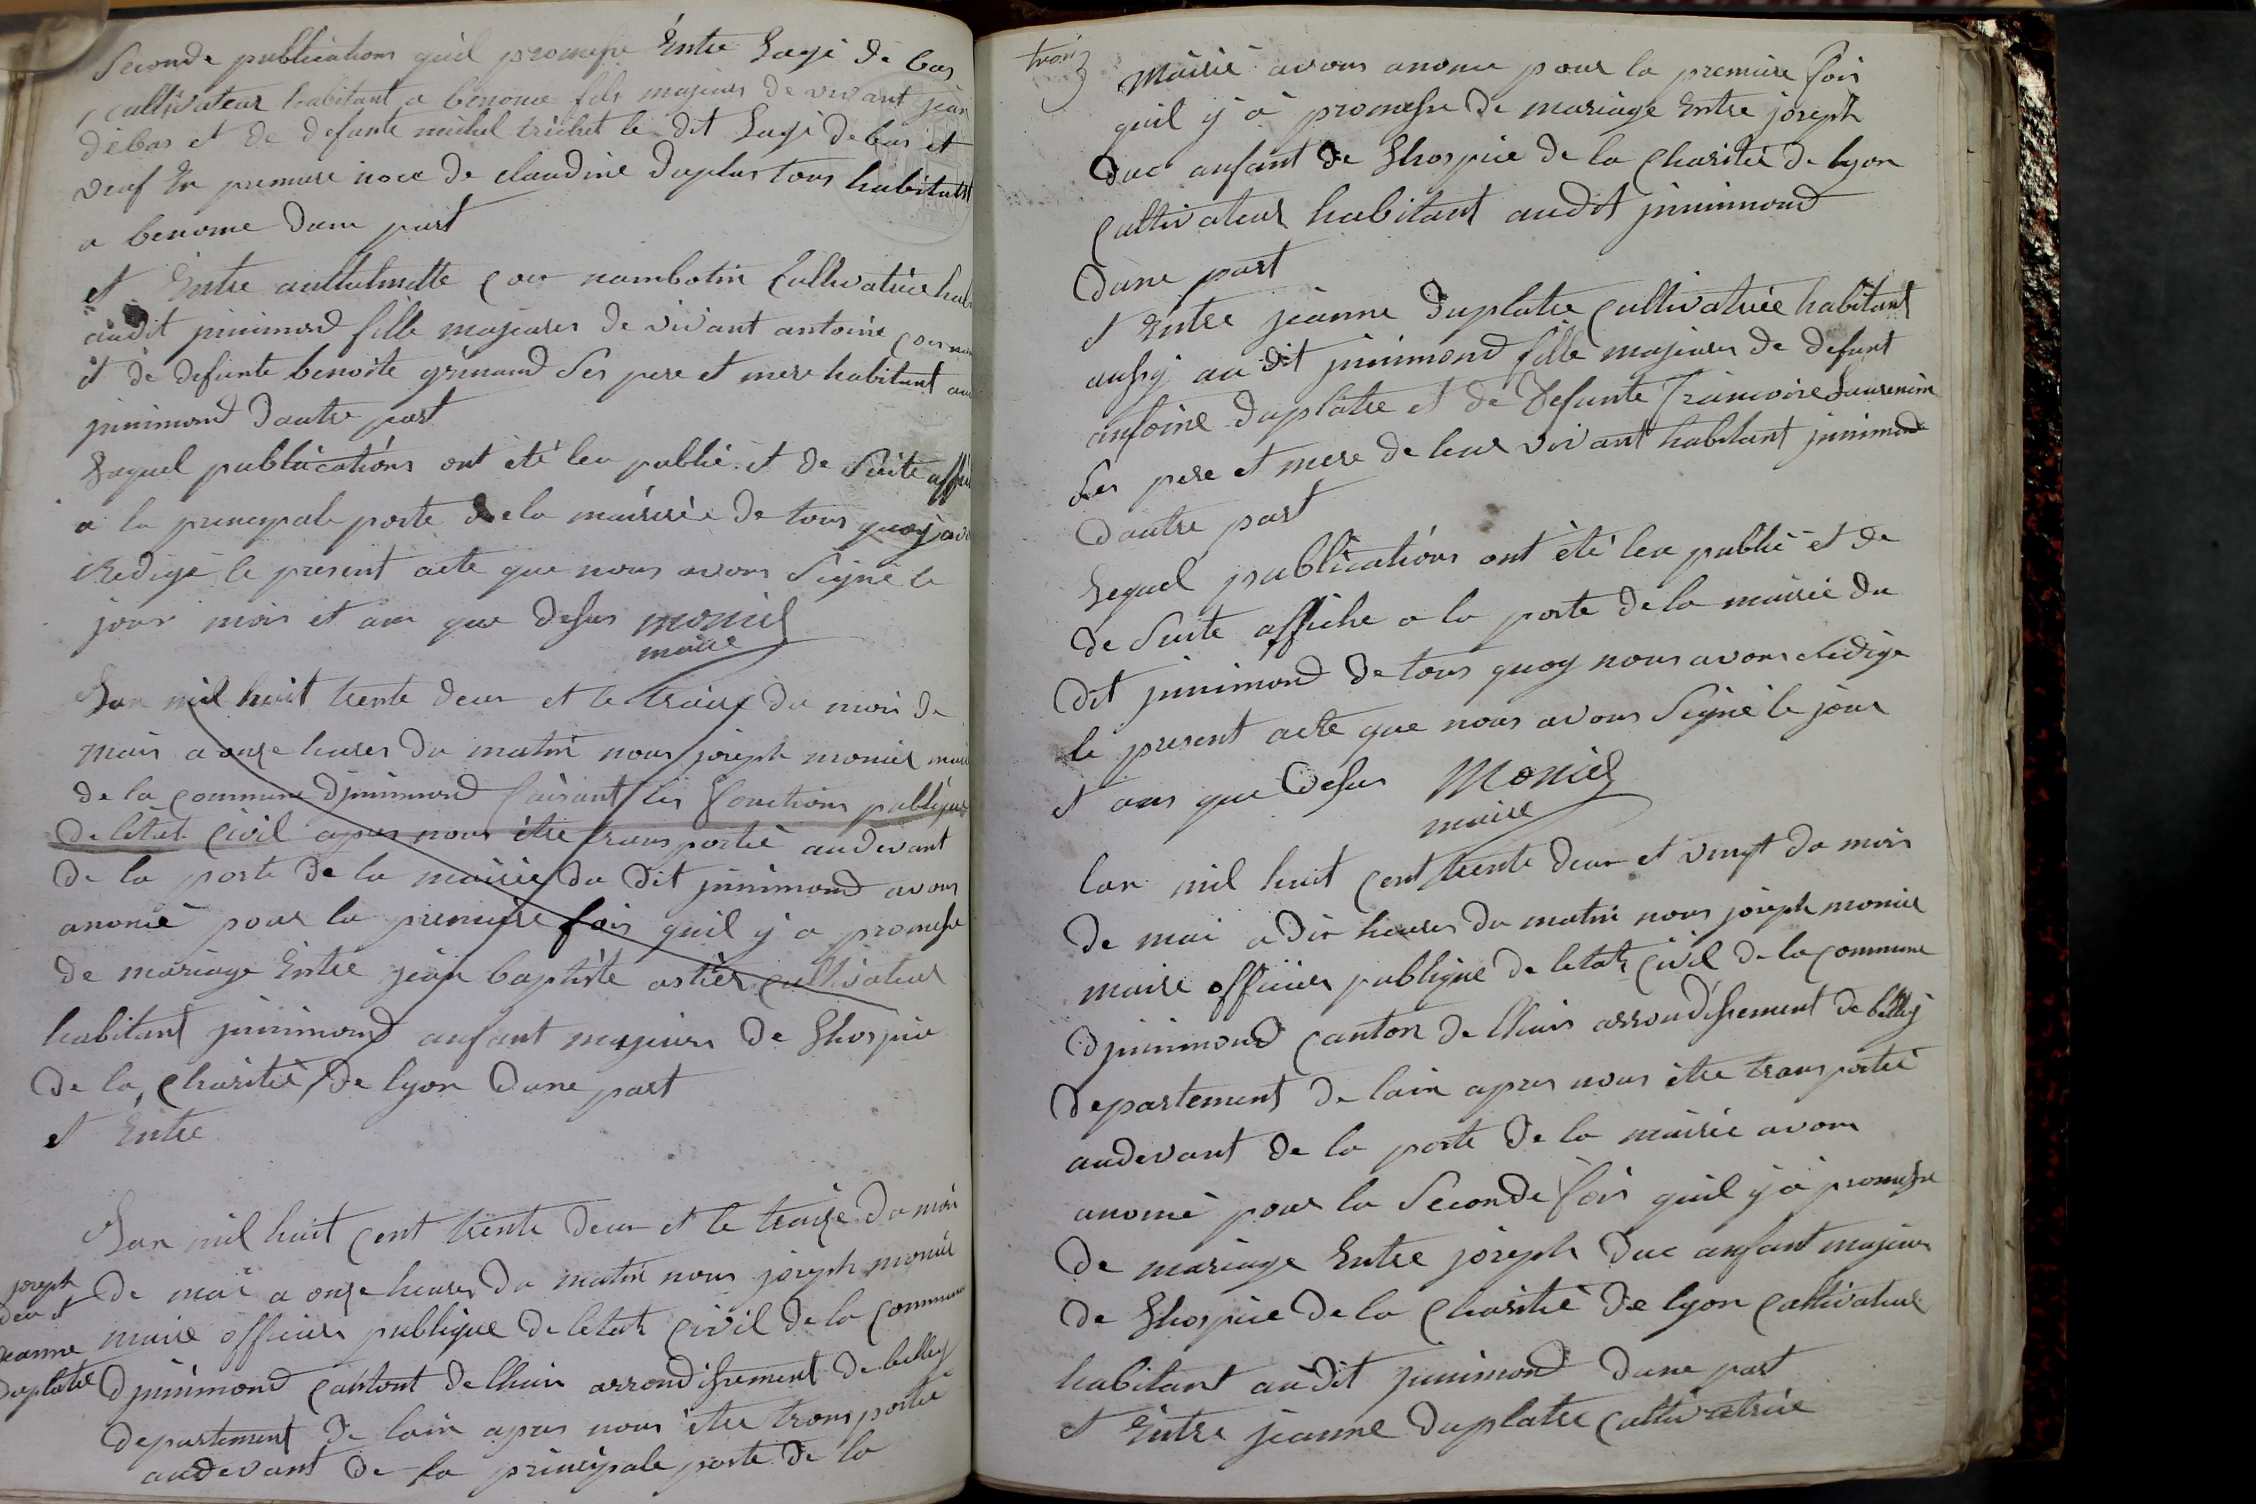 Seconde publications quil promesse Entre Lagé de bas
cultivateur habitant a benonce fils majeurs de vivant jean
débas et de defunte michel trichet le dit Lagé debas et
veuf En premiere noce de claudine Duplus tous habitant
a benonce Dune part
et Entre Cultivatrice
audit jnnimond fille majeures de vivant antoine
et de defunte benoite grinand Ses pere et mere habitant au
jnnimond Dautre part
Lequel publications ont été leu publié et de Suite
a la principale porte de la mairiée de tous quoy
Redigé le present acte que nous avons Signé le
jour mois et an que desus monier
maire
Lan mil huit trente deux et le traize du mois de
mais a onze heures du matin nous joseph monier
de la commune djnnimond faisant les fonctions publique
de létat civil apres nous étre transportié audevant
de la porte de la mairie du dit jnnimond avons
anoncé pour la premiere fois quil y a promesse
de mariage Entre jéan baptiste astier cultivateur
habitant jnnimond anfant majeurs de Lhospice
de la Charitié de lyon Dune part
et Entre
Lan mil huit cent trente deux et le traize du mois
joseph
duc et
jeanne
duplatre
de mai a onze heures du matin nous joseph monier
maire officier publique de letat civil de la commune
djnnimond cantont de lhuis arrondissement de belley
departement de lain apres nous être transportié
audevant de la principale porte de la
trois
Mairie avons anoncé pour la premiere fois
quil y à promesse de mariage Entre joseph
duc anfant de Lhospice de la Charitié de lyon
Cultivateur habitant audit jnnimond
Dune part
et Entre jeanne Duplatre Cultivatrice habitant
aussy au dit jnnimond fille majeures de defunt
antoine duplatre et de Defunte francoise
Ses pere et mere de leur vivant habitant jnnimond
Dautre part
Lequel publications ont été leu publié et de
de Suite affiche a la porte de la mairie du
dit jnnimond de tous quoy nous avons Redige
le present acte que nous avons Signé le jour
et ans que desus Monier
maire
Lan mil huit cent trente deux et vingt du mois
de mai a dix heures du matin nous joseph monier
maire officier publique de letat civil de la commune
djnnimond Canton de lhuis arrondissement de belley
departement de lain apres nous être transportié
audevant de la porte de la mairie avons
anoncé pour la Seconde fois quil y à promesse
de mariage Entre joseph duc anfant majeurs
de Lhospice de la Charitié de lyon Cultivateur
habitant audit jnnimond Dune part
et Entre jeanne Duplatre Cultivatrice